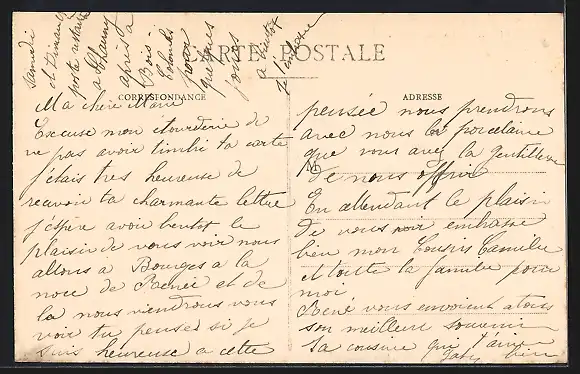 samedi
et Dimanche
poste restante
a Chauny
après a
Bois-
Colombes
pour
quelques
jours
a bientot
je t'embrasse
CARTE POSTALE
CORRESPONDANCE
ADRESSE
Ma chere Marie
Excuse mon étourderie de
ne pas avoir timbré ta carte
j'étais tres heureuse de
recevoir ta charmante lettre
j'espère avoir bientot le
plaisir de vous voir nous
allons a Bourges a la
noce de Renée et de
la nous viendrons vous
voir tu penses si je
suis heureuse a cette
pensée nous prendrons
avec nous la porcelaine
que vous avez la gentillesse
de nous offrir
En attendant le plaisir
de vous voir embrasse
bien mon Cousin Camille
et toute la famille pour
moi
René vous envoient a tous
son meilleur souvenir
Ta cousine qui t'aime
bien